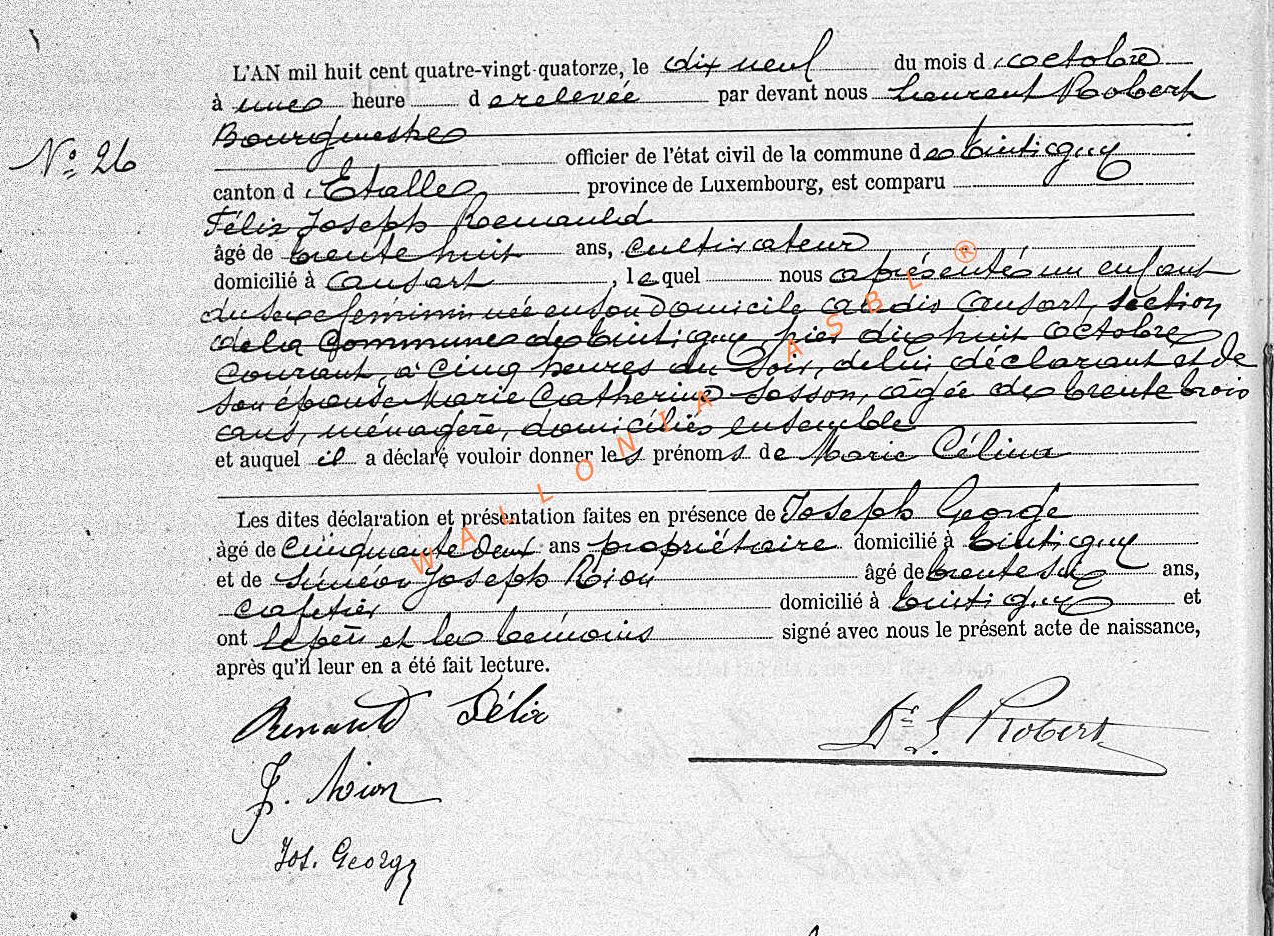 L'AN mil huit cent quatre-vingt-quatorze, le dix neuf du mois d'octobre
à une heure de relevée par devant nous Laurent Robert
Bourgmestre
N° 26
officier de l'état civil de la commune de Tintigny
canton d'Etalle, province de Luxembourg, est comparu
Félix Joseph Renauld
âgé de trente huit ans, cultivateur
domicilié à Ansart, lequel nous a présenté un enfant
du sexe féminin née en son domicile au dis Ansart, section
de la Commune de Tintigny, hier dix huit Octobre
courant, à cinq heures du soir, de lui déclarant et de
son épouse Marie Catherine Sosson, âgée de trente trois
ans, ménagère, domiciliés ensemble
et auquel il a déclaré vouloir donner les prénoms de Marie Célina
Les dites déclaration et présentation faites en présence de Joseph George
âgé de cinquante deux ans propriétaire domicilié à Tintigny
et de Siméon Joseph Rion âgé de trente six ans,
cafetier domicilié à Tintigny et
ont le père et les témoins signé avec nous le présent acte de naissance,
après qu'il leur en a été fait lecture.
Renauld Félix
Dr L. Robert
J. Rion
Jos. George
WALLONIA ASBL ®